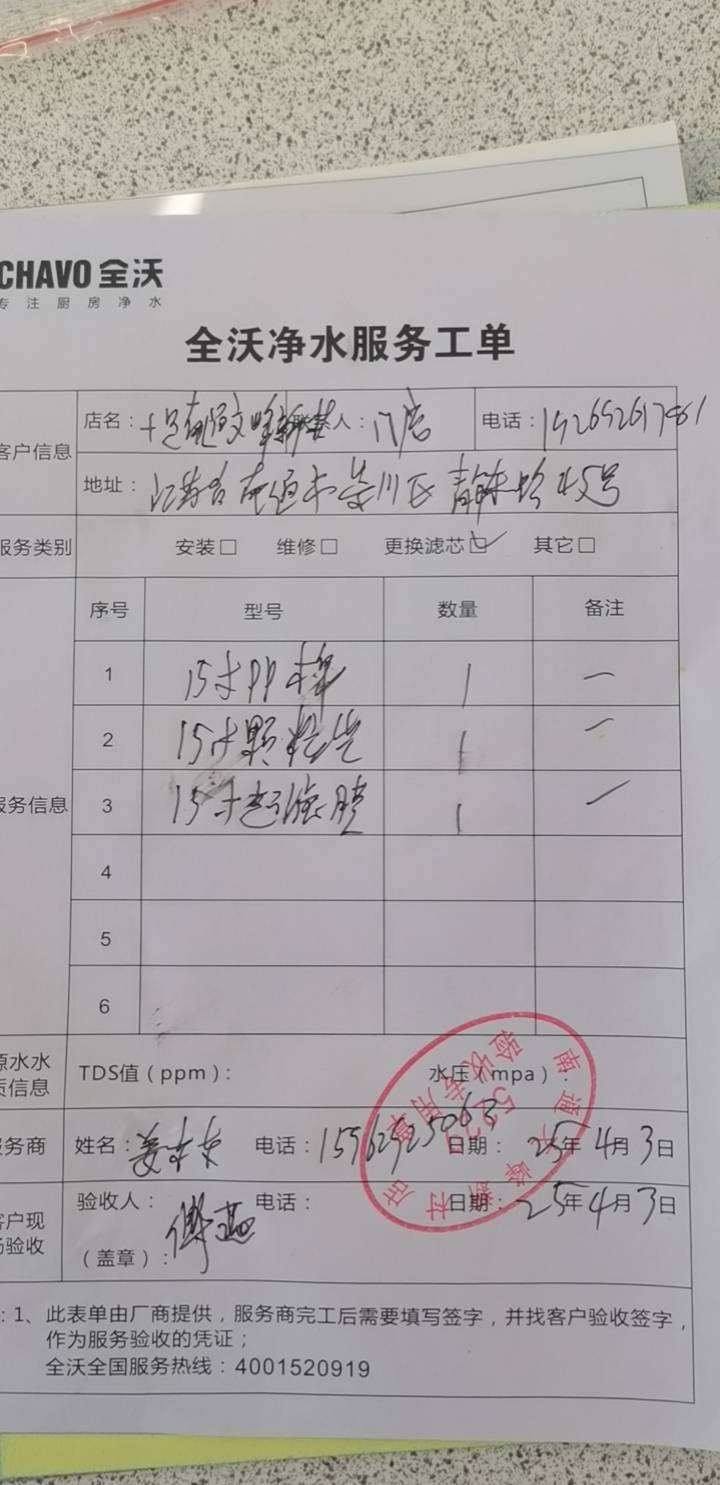 CHAVO 全沃
专注厨房净水
全沃净水服务工单
客户信息
店名：十足南通文峰新村 人：门店 电话：
地址：江苏省南通市崇川区青年东路 号
服务类别 安装□ 维修□ 更换滤芯☑ 其它□
序号 型号 数量 备注
服务信息
1 15寸PP棉 1 一
2 15寸颗粒炭 1 一
3 15寸超滤膜 1 一
4
5
6
原水水质信息 TDS值（ppm）： 水压（mpa）：
服务商 姓名： 电话：15962925063 日期：25年4月3日
客户现场验收 验收人： 电话： 日期：25年4月3日
（盖章）：
南通文峰新村店
5320
验收专用章
：1、此表单由厂商提供，服务商完工后需要填写签字，并找客户验收签字，
作为服务验收的凭证；
全沃全国服务热线：4001520919